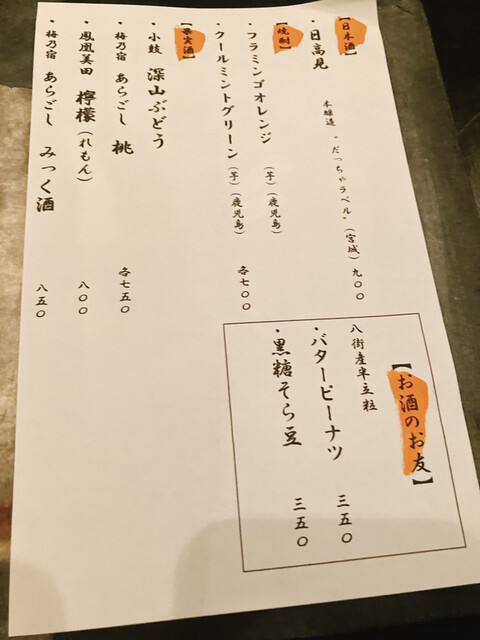 【日本酒】
・日高見 本醸造 "だっちゃラベル" (宮城) 九〇〇
【焼酎】
・フラミンゴオレンジ (芋) (鹿児島)
・クールミントグリーン (芋) (鹿児島) 各七〇〇
【果実酒】
・小鼓 深山ぶどう
・梅乃宿 あらごし 桃 各七五〇
・鳳凰美田 檸檬 (れもん) 八〇〇
・梅乃宿 あらごし みっく酒 八五〇
【お酒のお友】
八街産半立粒
・バターピーナツ 三五〇
・黒糖そら豆 三五〇